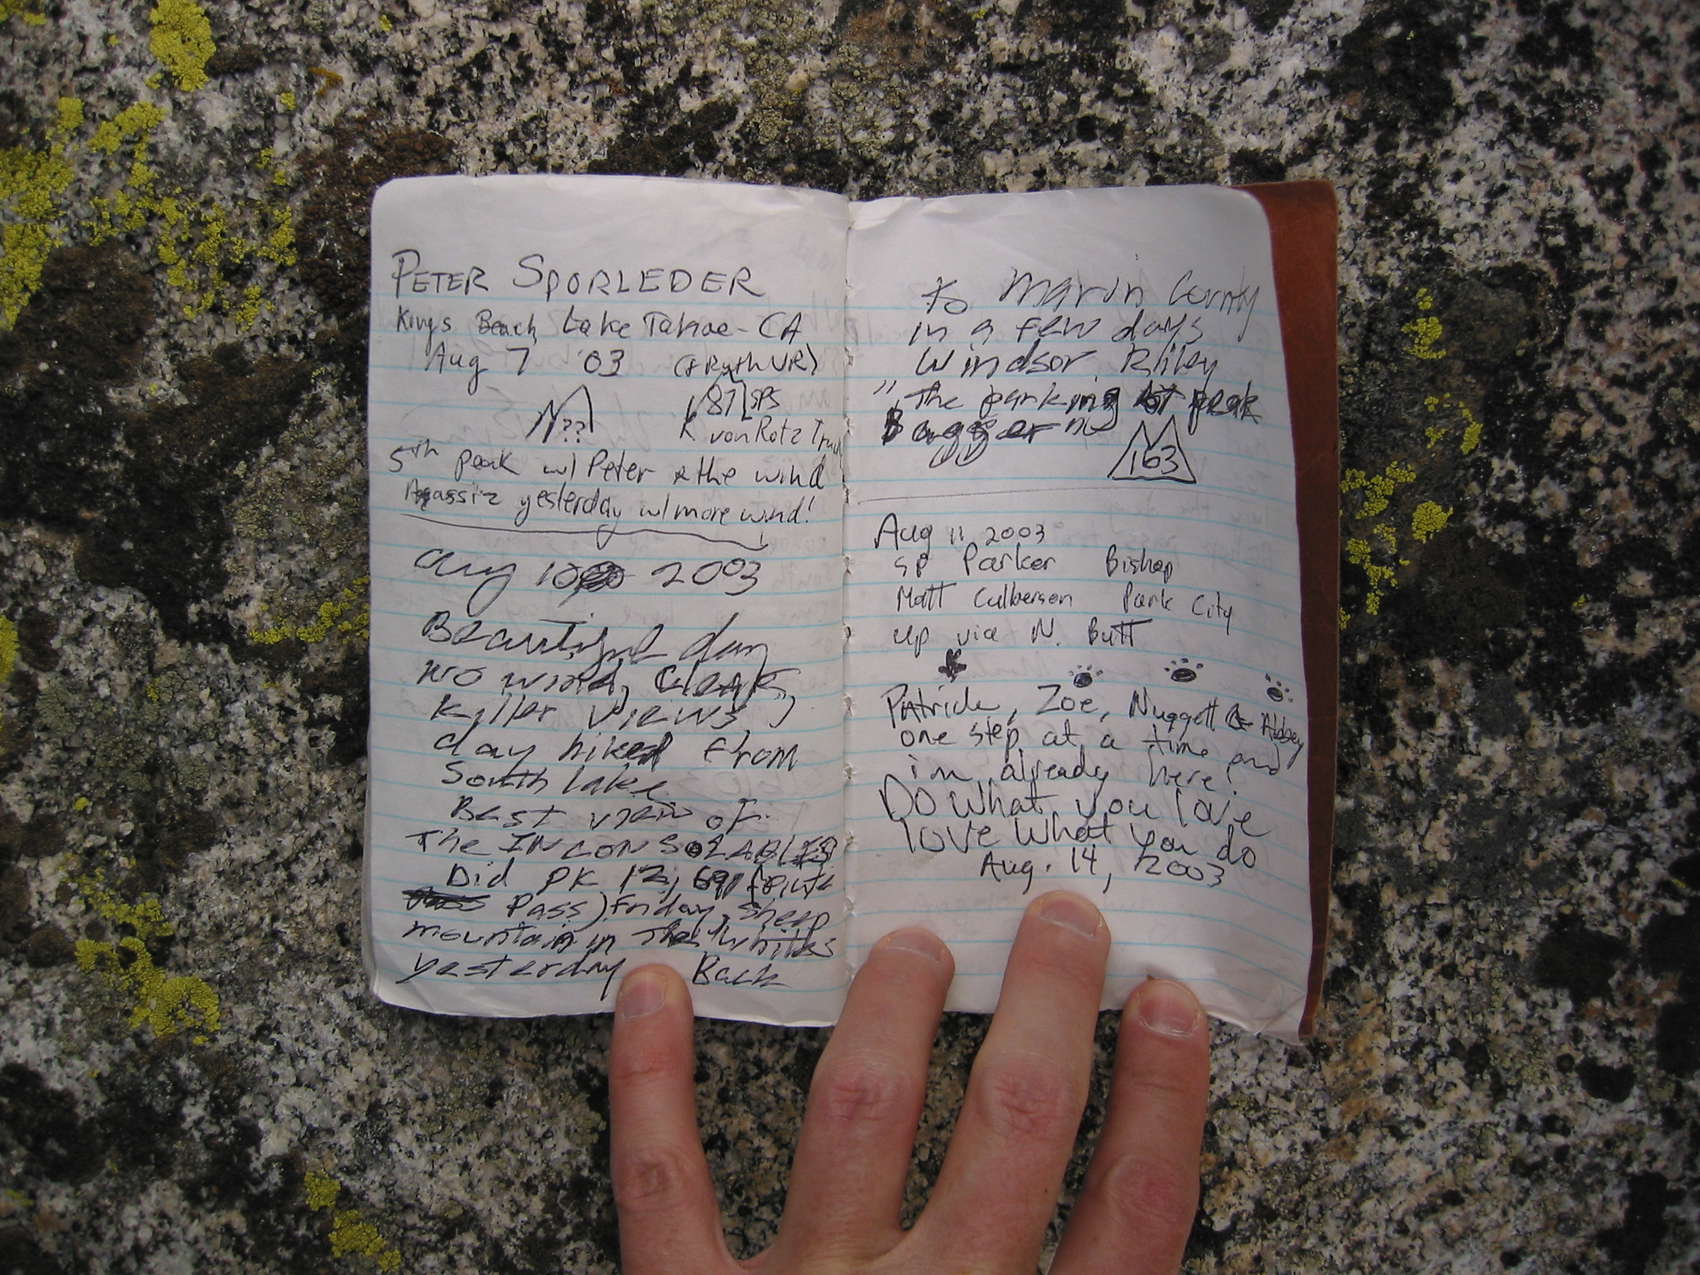 PETER SPORLEDER
Kings Beach, Lake Tahoe - CA
Aug 7 '03
N??
87 SPS
K von Rotz
5th peak w/ Peter & the wind
Agassiz yesterday w/ more wind!
Aug 10 2003
Beautiful day
no wind, clear,
killer views,
day hiked from
South Lake
Best view of
The INCONSOLABLES
Did PK 12,691 (Piute
Pass) Friday, Sheep
mountain in The Whites
yesterday Back
to Marin County
in a few days
Windsor Riley
"The parking lot peak
Bagger"
163
Aug 11 2003
SP Parker Bishop
Matt Culberson Park City
up via N. Butt
Patrick, Zoe, Nuggett & Abbey
one step at a time and
i'm already here!
Do what you love
love what you do
Aug. 14, 2003